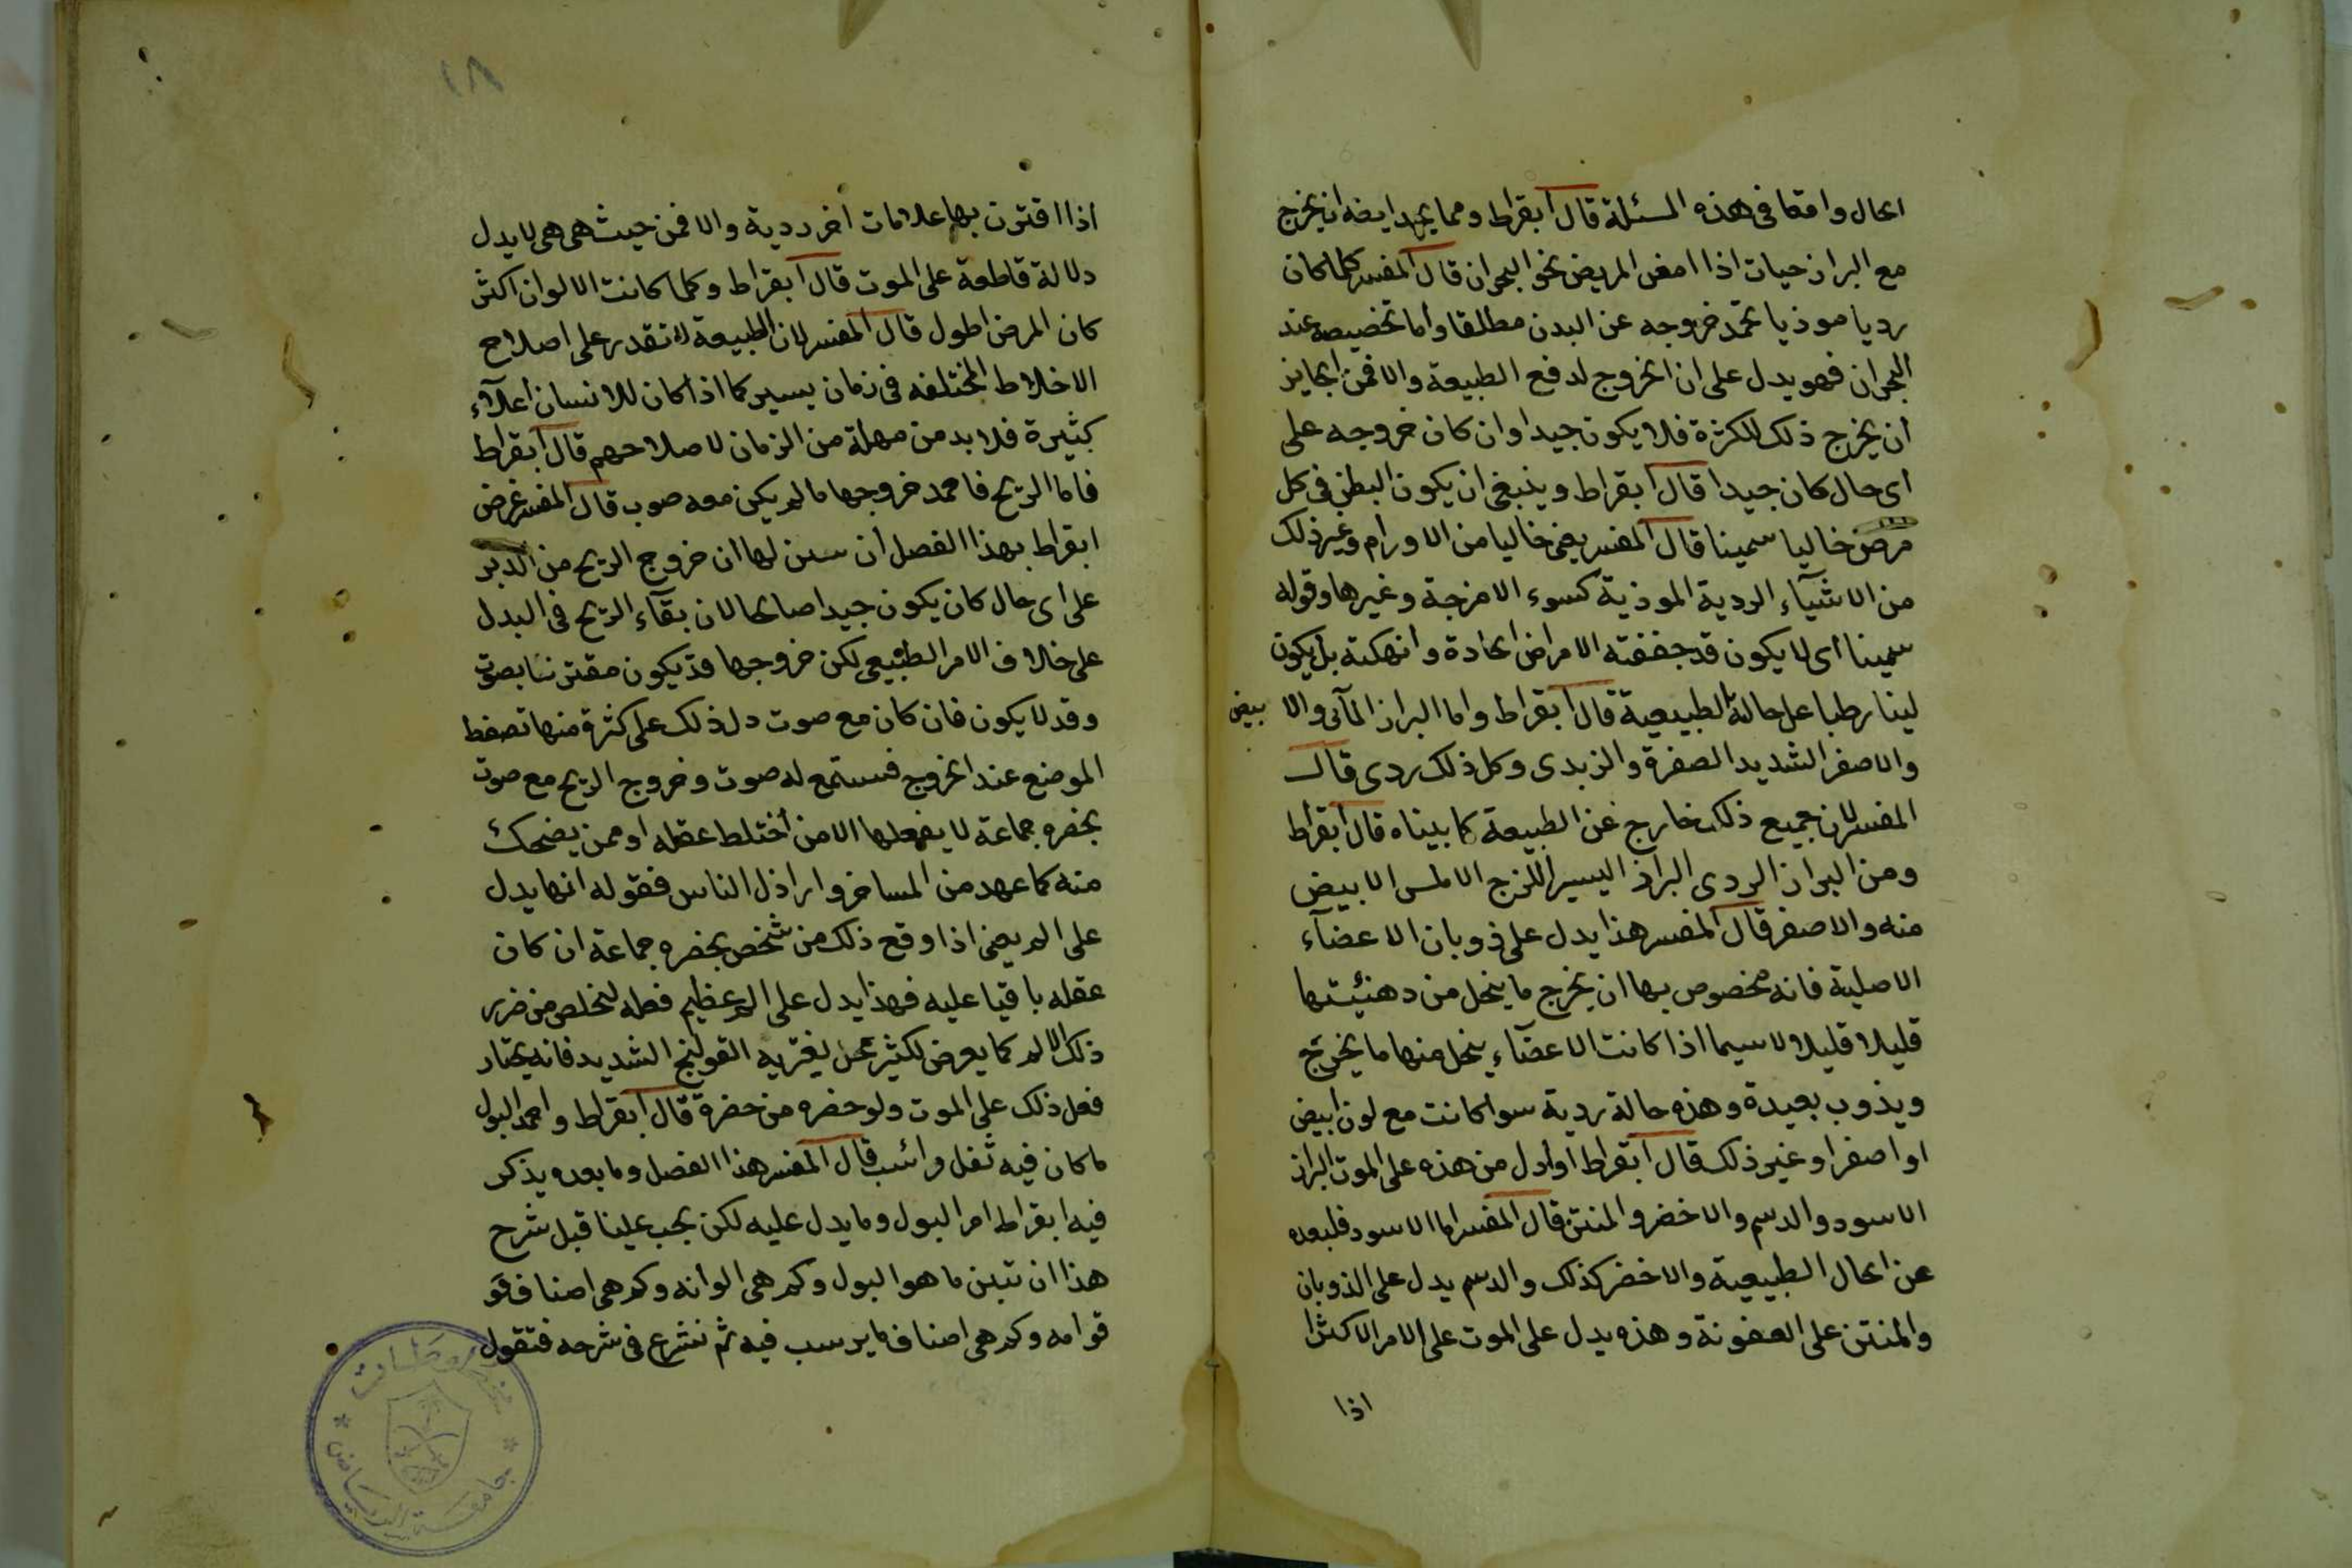 الحال وامعا فى هذه المسئلة قال ابقراط ومما يحمد ايضا ان يخرج
مع البراز حيات اذا امعن المريض نحو البحران قال المفسر كلما كان
رديا موذيا يحمد خروجه عن البدن مطلقا واما تخصيصه عند
البحران فهو يدل على ان الخروج لدفع الطبيعة والا فمن الجايز
ان يخرج ذلك للكثرة فلا يكون جيدا وان كان خروجه على
اى حال كان جيدا قال ابقراط وينبغى ان يكون البطن فى كل
مرض خاليا سمينا قال المفسر يعنى خاليا من الاورام وغير ذلك
من الاشيآء الردية الموذية كسوء الامزجة وغيرها وقوله
سمينا اى لا يكون قد جففته الامراض الحادة وانهكته بل يكون
لينا رطبا على حالة الطبيعية قال ابقراط واما البراز المآئى والابيض
والاصفر الشديد الصفرة والزبدى وكل ذلك ردى قال
المفسر لان جميع ذلك خارج عن الطبيعة كما بيناه قال ابقراط
ومن البراز الردى البراز اليسير اللزج الاملس الابيض
منه والاصفر قال المفسر هذا يدل على ذوبان الاعضآء
الاصلية فانه مخصوص بها ان يخرج ما ينحل من دهنيتها
قليلا قليلا لا سيما اذا كانت الاعضآء ينحل منها ما يخرج
ويذوب بعيدة وهذه حالة ردية سوا كانت مع لون ابيض
او اصفر او غير ذلك قال ابقراط اوادل من هذه على الموت البراز
الاسود والدسم والاخضر والمنتن قال المفسر اما الاسود فلبعده
عن الحال الطبيعية والاخضر كذلك والدسم يدل على الذوبان
والمنتن على العفونة وهذه يدل على الموت على الامر الاكثرا
اذا
١٨
اذا اقترن بها علامات اخر ردية والا فمن حيث هى هى لا يدل
دلالة قاطعة على الموت قال ابقراط وكلما كانت الالوان اكثر
كان المرض اطول قال المفسر لان الطبيعة لا تقدر على اصلاح
الاخلاط المختلفه فى زمان يسير كما اذا كان للانسان اعلآء
كثيرة فلا بد من مهلة من الزمان لاصلاحهم قال ابقراط
فاما الريح فاحمد خروجها ما لم يكن معه صوت قال المفسر غرض
ابقراط بهذا الفصل ان سين لها ان خروج الريح من الدبر
على اى حال كان يكون جيدا صالحا لان بقآء الريح فى البدن
على خلاف الامر الطبيعى لكن خروجها قد يكون مقترنا بصوت
وقد لا يكون فان كان مع صوت دل ذلك على كثرة منها تضغط
الموضع عند الخروج فيستمع له صوت وخروج الريح مع صوت
بحضره جماعة لا يفعلها الا من اختلط عقله او ممن يضحك
منه كما عهد من المساخر واراذل الناس فقوله انها يدل
على الم يعنى اذا وقع ذلك من شخص بحضره جماعة ان كان
عقله باقيا عليه فهذا يدل على الم عظيم فعله ليخلص من ضرر
ذلك الالم كما يعرض لكثير ممن يعتريه القولنج الشديد فانه يختار
فعل ذلك على الموت ولو حضره من حضره قال ابقراط واحمد البول
ما كان فيه ثفل راسب قال المفسر هذا الفصل وما بعده يذكر
فيه ابقراط امر البول وما يدل عليه لكن يجب علينا قبل شرح
هذا ان نتبين ما هو البول وكم هى الوانه وكم هى اصناف
قوامه وكم هى اصناف ما يرسب فيه ثم نشرع فى شرحه فنقول
جامعة الرياض